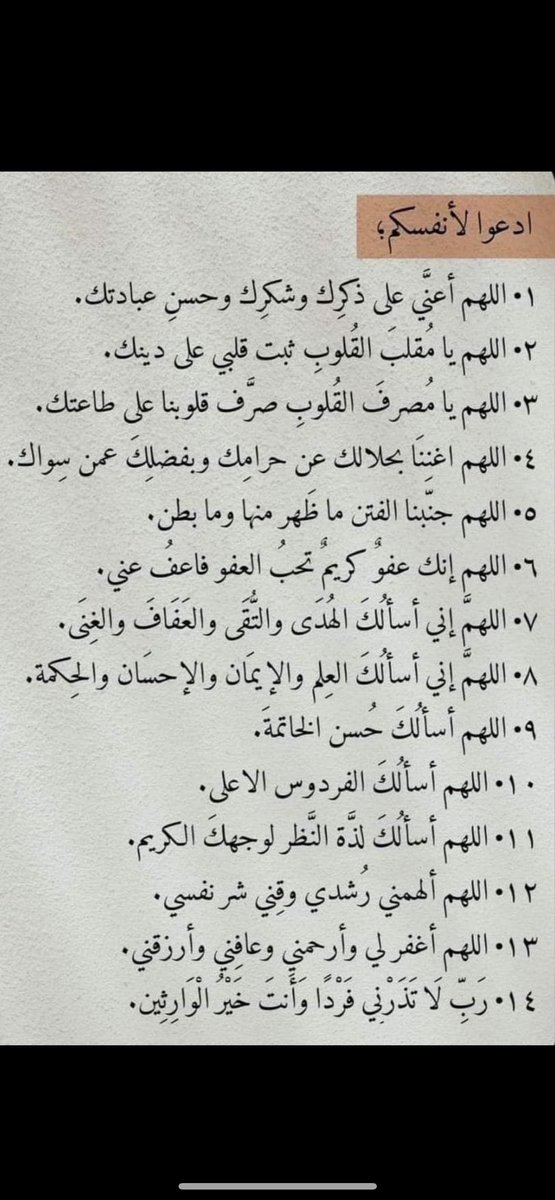 ادعوا لأنفسكم؛
٠١ اللهم أعنَّي على ذكرِك وشكرِك وحسنِ عبادتك.
٠٢ اللهم يا مُقلبَ القُلوبِ ثبت قلبي على دينك.
٠٣ اللهم يا مُصرفَ القُلوبِ صرَّف قلوبنا على طاعتك.
٠٤ اللهم اغنِننَا بحلالك عن حرامِك وبفضلِكَ عمن سِواك.
٠٥ اللهم جنّبنا الفتن ما ظَهر منها وما بطن.
٠٦ اللهم إنك عفوٌ كريمٌ تحبُ العفو فاعفُ عني.
٠٧ اللهمَّ إني أسألُكَ الهُدَى والتُّقَى والعَفَافَ والغِنَى.
٠٨ اللهمَّ إني أسألُكَ العِلم والإيمَان والإحسَان والحِكمة.
٠٩ اللهم أسألُكَ حُسن الخاتمةَ.
٠١٠ اللهم أسألُكَ الفردوس الاعلى.
٠١١ اللهم أسألُكَ لذَّة النَّظر لوجهكَ الكريم.
٠١٢ اللهم ألهمني رُشدي وقِني شر نفسي.
٠١٣ اللهم أغفر لي وأرحمني وعافِني وأرزقني.
٠١٤ رَبِّ لَا تَذَرْنِي فَرْدًا وَأَنتَ خَيْرُ الْوَارِثِين.